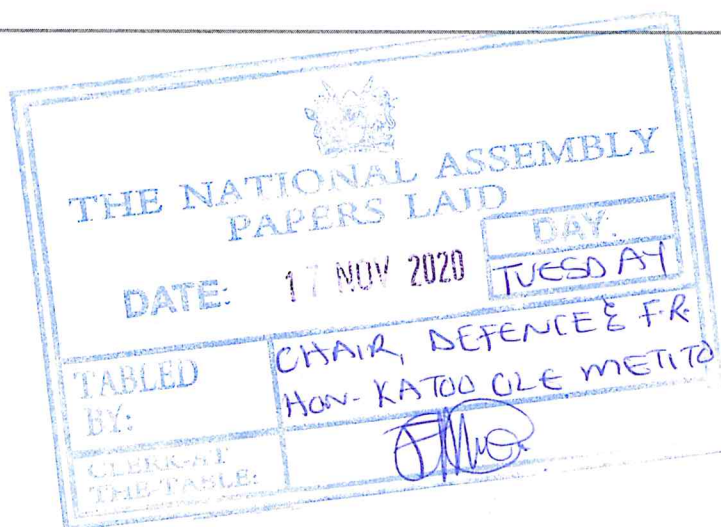 THE NATIONAL ASSEMBLY
PAPERS LAID
DATE: 17 NOV 2020
DAY.
TUESDAY
TABLED
BY:
CHAIR, DEFENCE & F.R.
HON. KATOO OLE METITO
CLERK-AT
THE-TABLE: